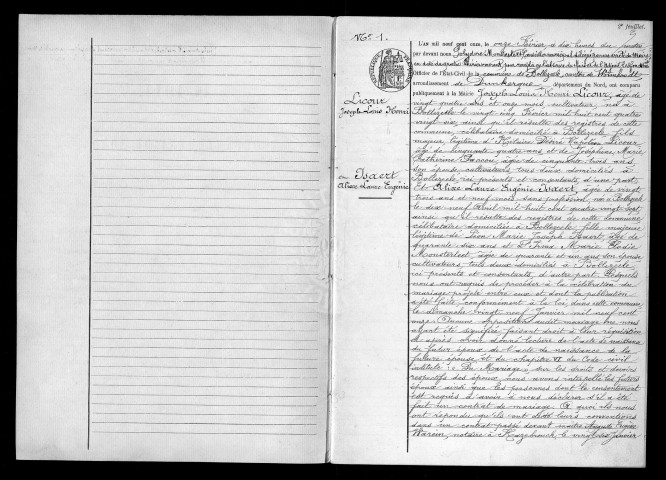 2e feuillet.
No 1.
L'an mil neuf cent onze, le onze Février à dix heures du
par devant nous
Officier de l'État-Civil de la commune de Bollezeele, canton de Wormhoudt
arrondissement de Dunkerque département du Nord, ont comparu
publiquement à la Mairie Joseph Louis Henri Licour, âgé de
vingt quatre ans et onze mois cultivateur, né à
Bollezeele le vingt cinq Février mil huit cent quatre
vingt six, ainsi qu'il résulte des registres de cette
commune, célibataire domicilié à Bollezeele fils
majeur légitime d' Licour,
âgé de cinquante quatre ans et de Joséphine Marie
Catherine âgée de cinquante trois ans,
son épouse, cultivateurs, tous deux domiciliés à
Bollezeele, ici présents et consentants, d'une part.
Et Alixe Laure Eugénie Isaert, âgée de vingt
trois ans et neuf mois sans profession, née à Bollezeele
le dix neuf Avril mil huit cent quatre vingt sept,
ainsi qu'il résulte des registres de cette commune
célibataire domiciliée à Bollezeele, fille majeure
légitime de Léon Marie Joseph Isaert, âgé de
quarante six ans et d' Marie Elodie
âgée de quarante et un ans son épouse
cultivateurs, tous deux domiciliés à Bollezeele
ici présents et consentants, d'autre part. Lesquels
nous ont requis de procéder à la célébration du
mariage projeté entre eux et dont la publication
a été faite, conformément à la loi, dans cette commune
le dimanche vingt neuf Janvier mil neuf cent
onze. Aucune opposition audit mariage ne nous
ayant été signifiée, faisant droit à leur réquisition
et après avoir donné lecture de l'acte de naissance
du futur époux de l'acte de naissance de la
future épouse et du chapitre VI du Code civil
intitulé : Du Mariage, sur les droits et devoirs
respectifs des époux, nous avons interpellé les futurs
époux ainsi que les personnes dont le consentement
est requis à avoir à nous déclarer s'il a été
fait un contrat de mariage. À quoi ils nous
ont répondu qu'ils ont réglé leurs conventions
dans un contrat passé devant maître Auguste
Warein, notaire à Hazebrouck, le vingt six Janvier
Licour
Joseph Louis Henri
et Isaert
Alixe Laure Eugénie